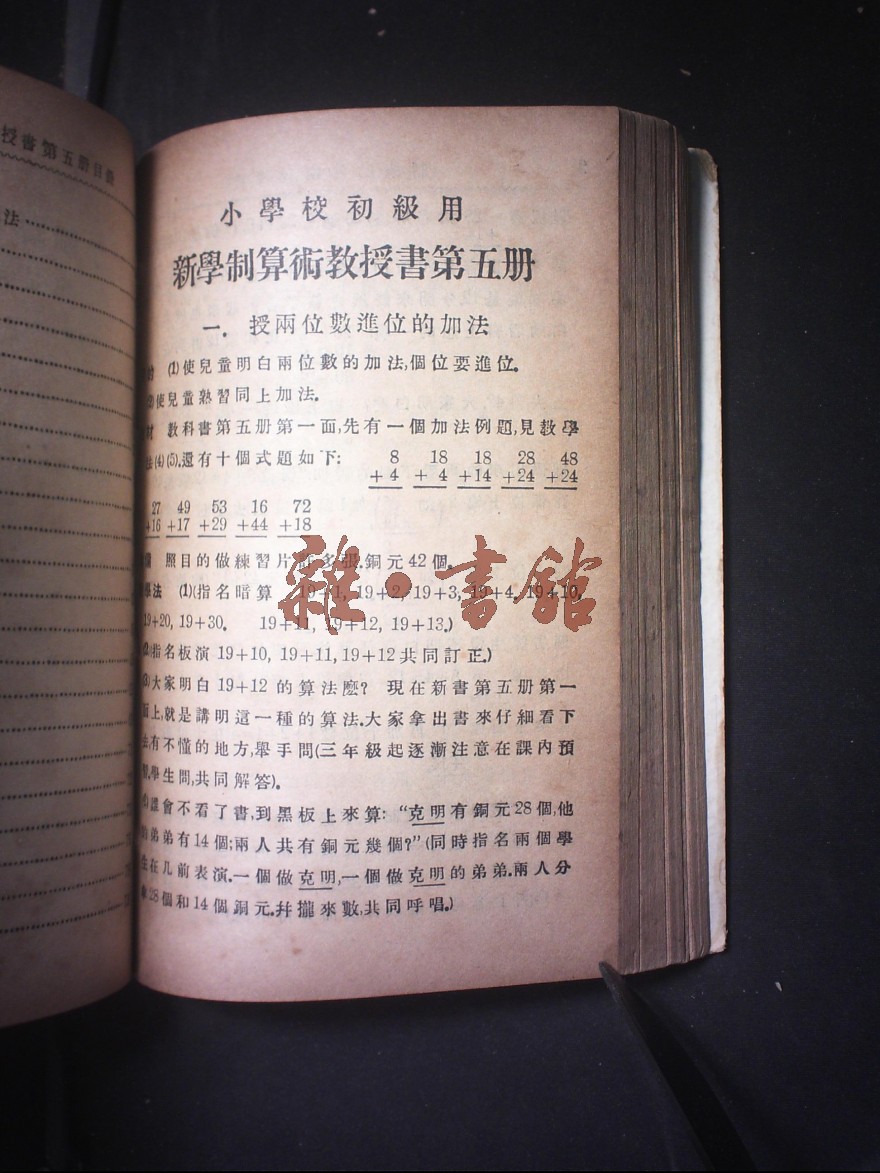 授書第五册目錄
法
小學校初級用
新學制算術教授書第五册
一. 授兩位數進位的加法
(1)使兒童明白兩位數的加法,個位要進位.
(2)使兒童熟習同上加法.
材 教科書第五册第一面,先有一個加法例題,見教學
法(4)(5).還有十個式題如下: 8 18 18 28 48
+4 +4 +14 +24 +24
27 49 53 16 72
+16 +17 +29 +44 +18
備 照目的做練習片許多張.銅元42個.
學法 (1)(指名暗算 19+1, 19+2, 19+3, 19+4, 19+10,
19+20, 19+30. 19+11, 19+12, 19+13.)
(2)(指名板演 19+10, 19+11, 19+12共同訂正.)
(3)大家明白19+12的算法麽? 現在新書第五册第一
面上,就是講明這一種的算法.大家拿出書來仔細看下
去,有不懂的地方,舉手問(三年級起逐漸注意在課內預
習.學生問,共同解答).
(4)誰會不看了書,到黑板上來算: “克明有銅元28個,他
的弟弟有14個;兩人共有銅元幾個?”(同時指名兩個學
生在几前表演.一個做克明,一個做克明的弟弟.兩人分
拿28個和14個銅元.幷攏來數,共同呼唱.)
雜·書館